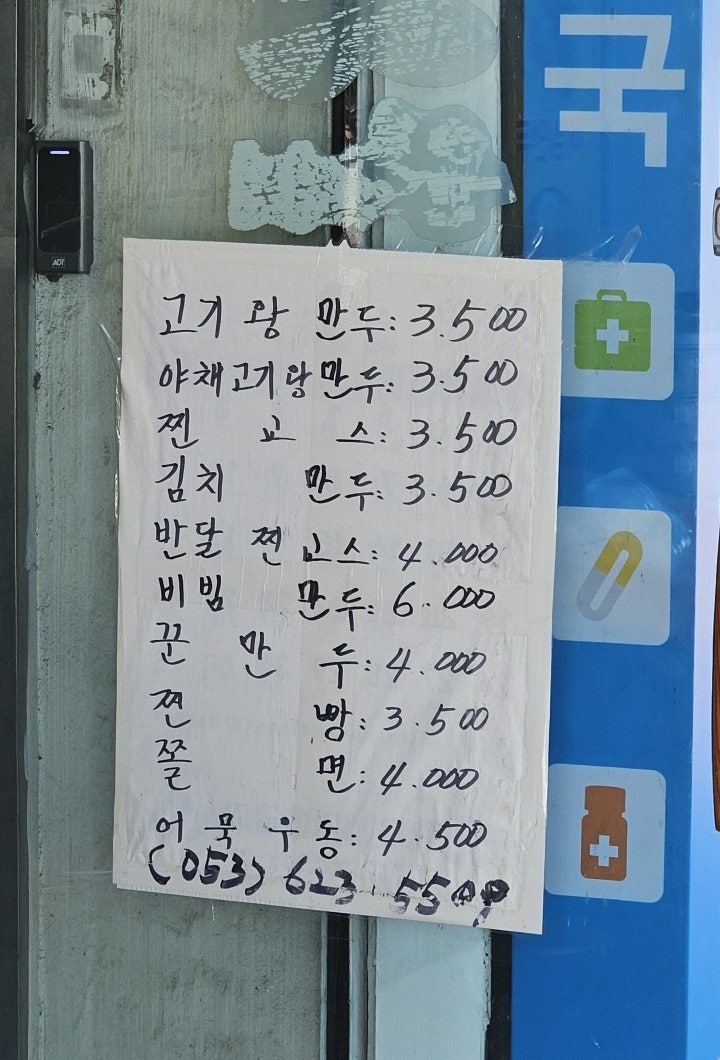 국
ADT
고기왕만두: 3.500
야채고기왕만두: 3.500
찐교스: 3.500
김치만두: 3.500
반달찐교스: 4.000
비빔만두: 6.000
꾼만두: 4.000
찐빵: 3.500
쫄면: 4.000
어묵우동: 4.500
(053) 623.5509